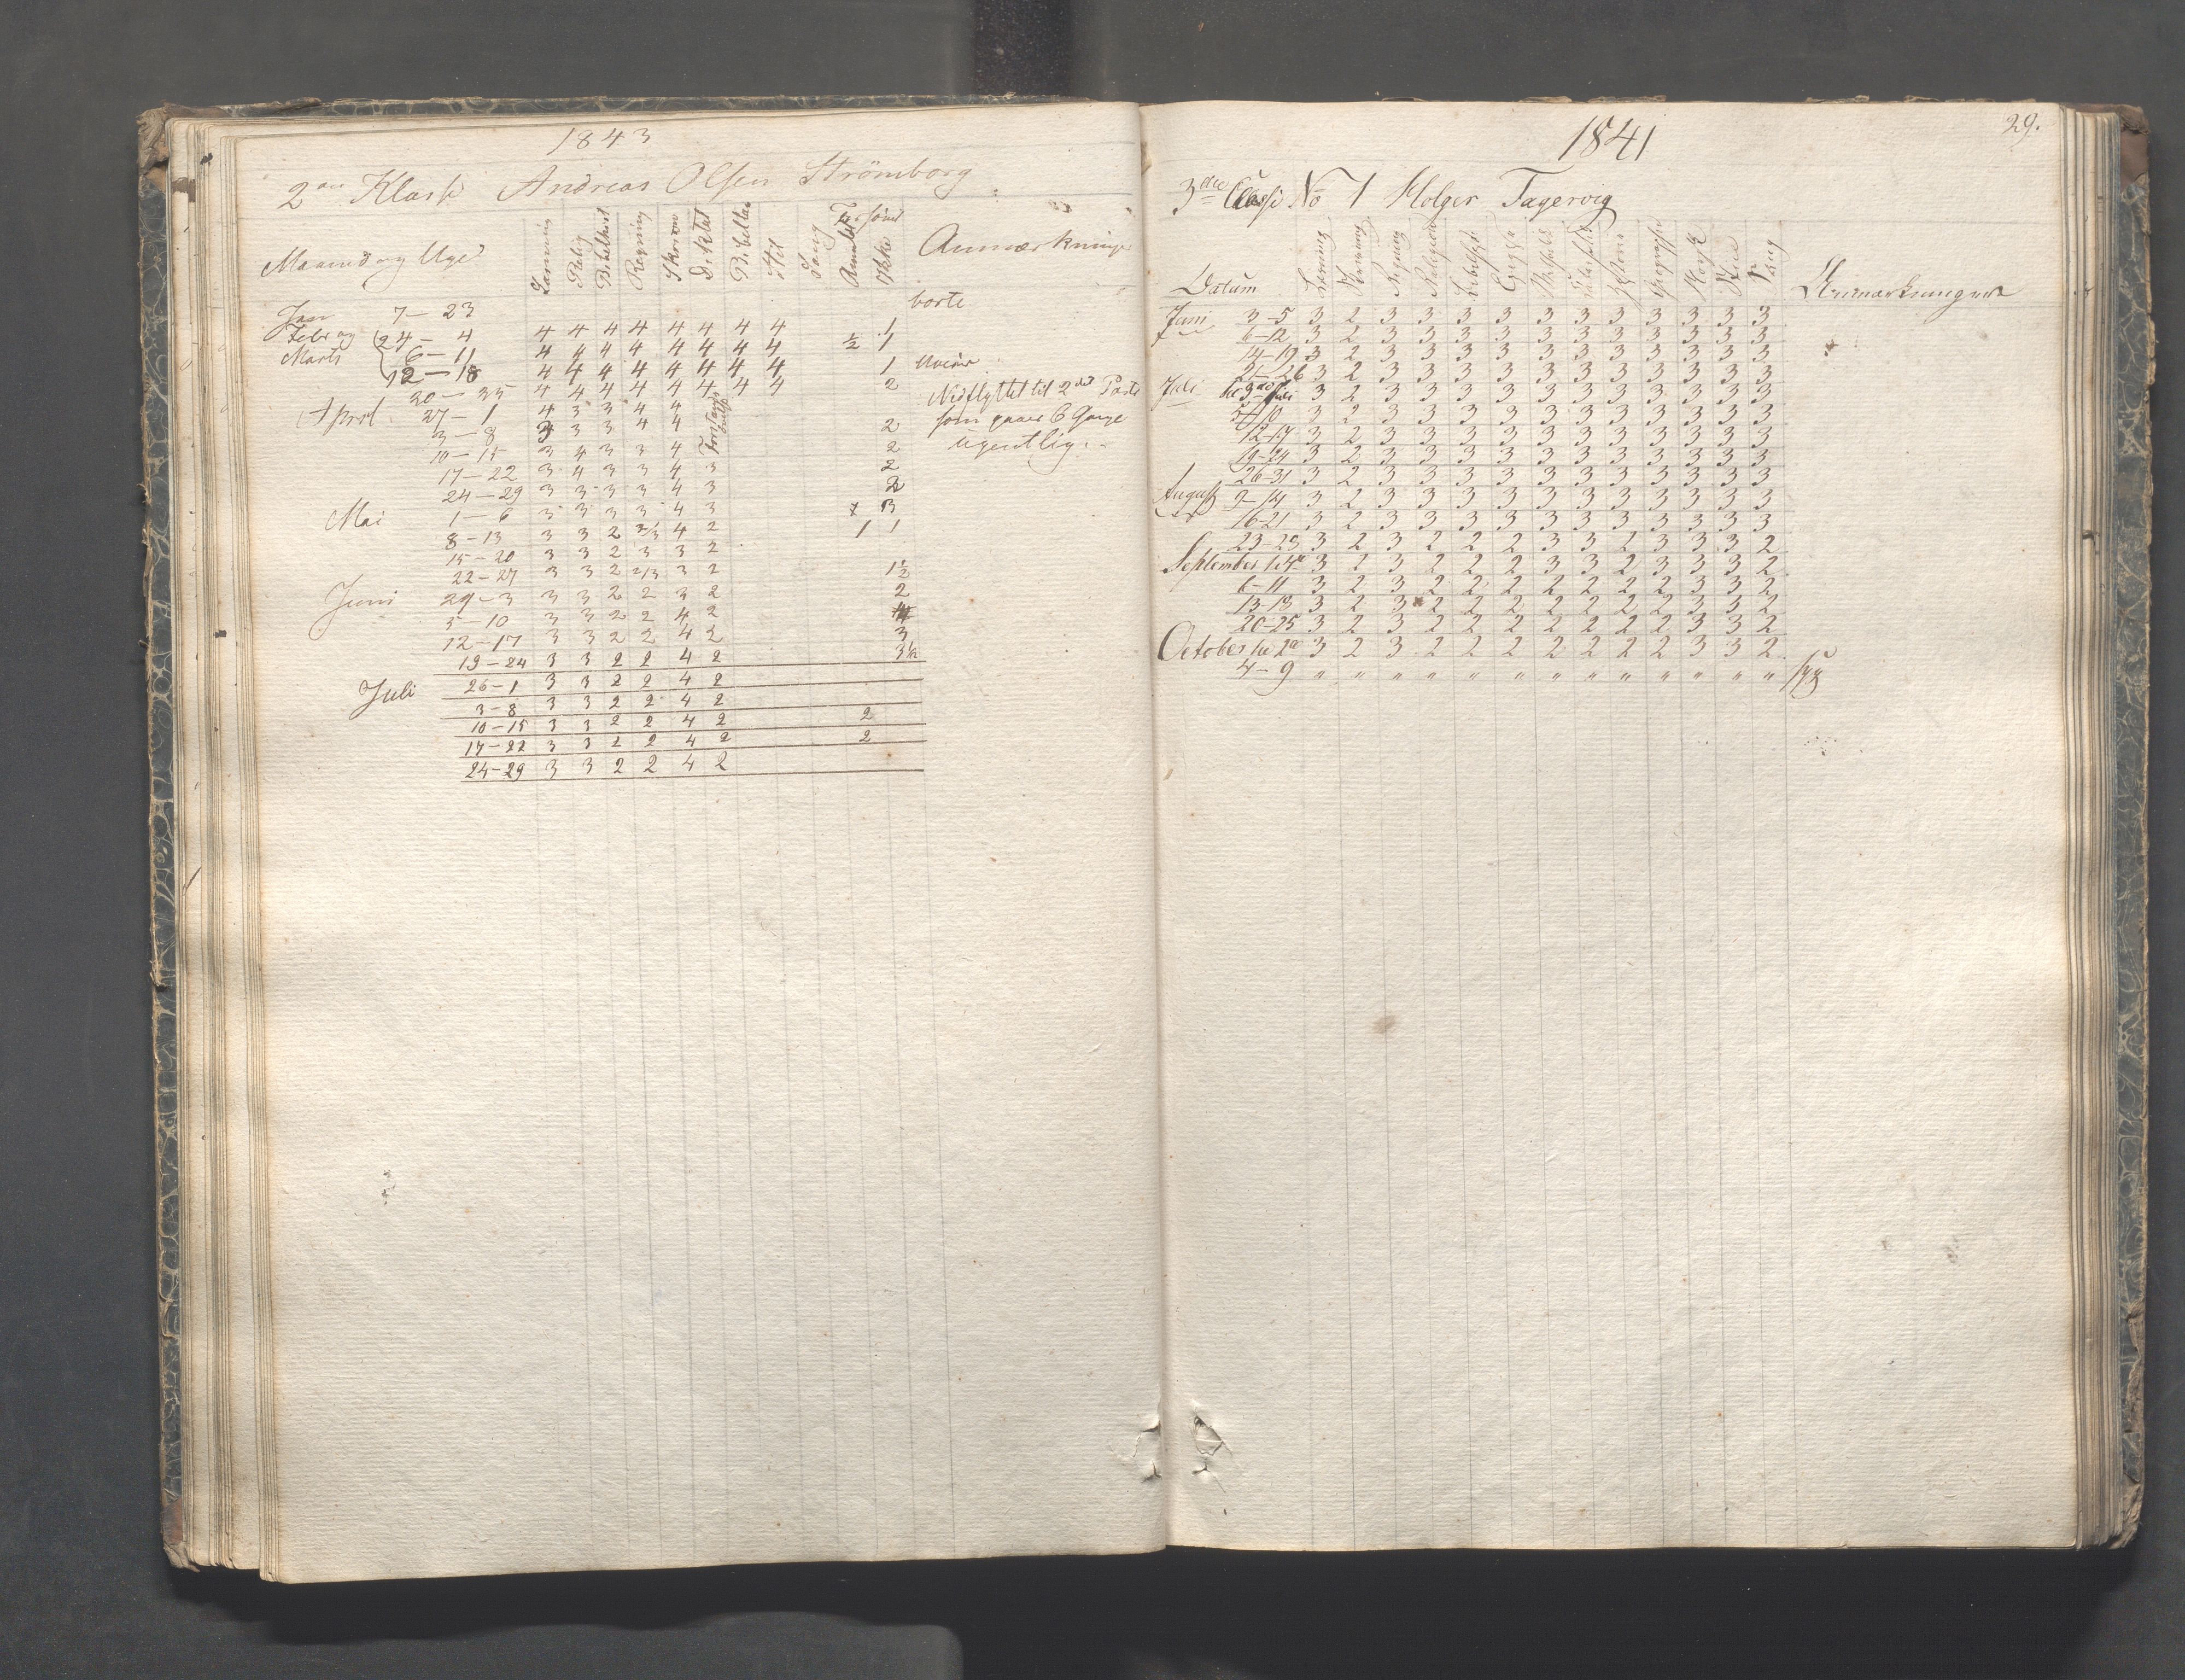 1843
2den Klasse Andreas Olsen Strömborg
Maaned og Uge Læsning Relig Bibelhist Regning Skrivn Diktat Bibellæs Stil Sang Forsömt Anmeldt Ikke Anmærkninger
Jan 7 — 23 borte
Febr og 24 — 4 4 4 4 4 4 4 4 4 1
Marts 6 — 11 4 4 4 4 4 4 4 4 ½ 1
12 — 18 4 4 4 4 4 4 4 4 1
20 — 25 4 4 4 4 4 4 4 4 2 Nedflyttet til 2det Parti
April 27 — 1 4 3 3 4 4 som gaaer 6 Gange
3 — 8 3 3 3 4 4 2 ugentlig.
10 — 15 3 4 3 3 4 2
17 — 22 3 4 3 3 4 3 2
24 — 29 3 3 3 3 4 3 2
Mai 1 — 6 3 3 3 3 4 3 3
8 — 13 3 3 2 2/3 4 2 1 1
15 — 20 3 3 2 3 3 2
22 — 27 3 3 2 2/3 3 2 1½
Juni 29 — 3 3 3 2 2 3 2 2
5 — 10 3 3 2 2 4 2
12 — 17 3 3 2 2 4 2 3
19 — 24 3 3 2 2 4 2 3½
Juli 26 — 1 3 3 2 2 4 2
3 — 8 3 3 2 2 4 2
10 — 15 3 3 2 2 4 2 2
17 — 22 3 3 2 2 4 2 2
24 — 29 3 3 2 2 4 2
29.
1841
3die Classe No 1 Holger Tagervig
Datum Læsning Skrivning Regning Religion Geographie Sang Anmærkninger
Juni 3 — 5 3 2 3 3 3 3 3 3 3 3 3 3 3
6 — 12 3 2 3 3 3 3 3 3 3 3 3 3 3
14 — 19 3 2 3 3 3 3 3 3 3 3 3 3 3
21 — 26 3 2 3 3 3 3 3 3 3 3 3 3 3
Juli 3 2 3 3 3 3 3 3 3 3 3 3 3
5 — 10 3 2 3 3 3 3 3 3 3 3 3 3 3
12 — 17 3 2 3 3 3 3 3 3 3 3 3 3 3
19 — 24 3 2 3 3 3 3 3 3 3 3 3 3 3
26 — 31 3 2 3 3 3 3 3 3 3 3 3 3 3
August 9 — 14 3 2 3 3 3 3 3 3 3 3 3 3 3
16 — 21 3 2 3 3 3 3 3 3 3 3 3 3 3
23 — 3 2 3 2 2 2 3 3 2 3 3 3 2
September 3 2 3 2 2 2 3 3 2 3 3 3 2
6 — 11 3 2 3 2 2 2 2 2 2 2 3 3 2
13 — 18 3 2 3 2 2 2 2 2 2 2 3 3 2
20 — 25 3 2 3 2 2 2 2 2 2 2 3 3 2
October 3 2 3 2 2 2 2 2 2 2 3 3 2
4 — 9 " " " " " " " " " " " " " syg